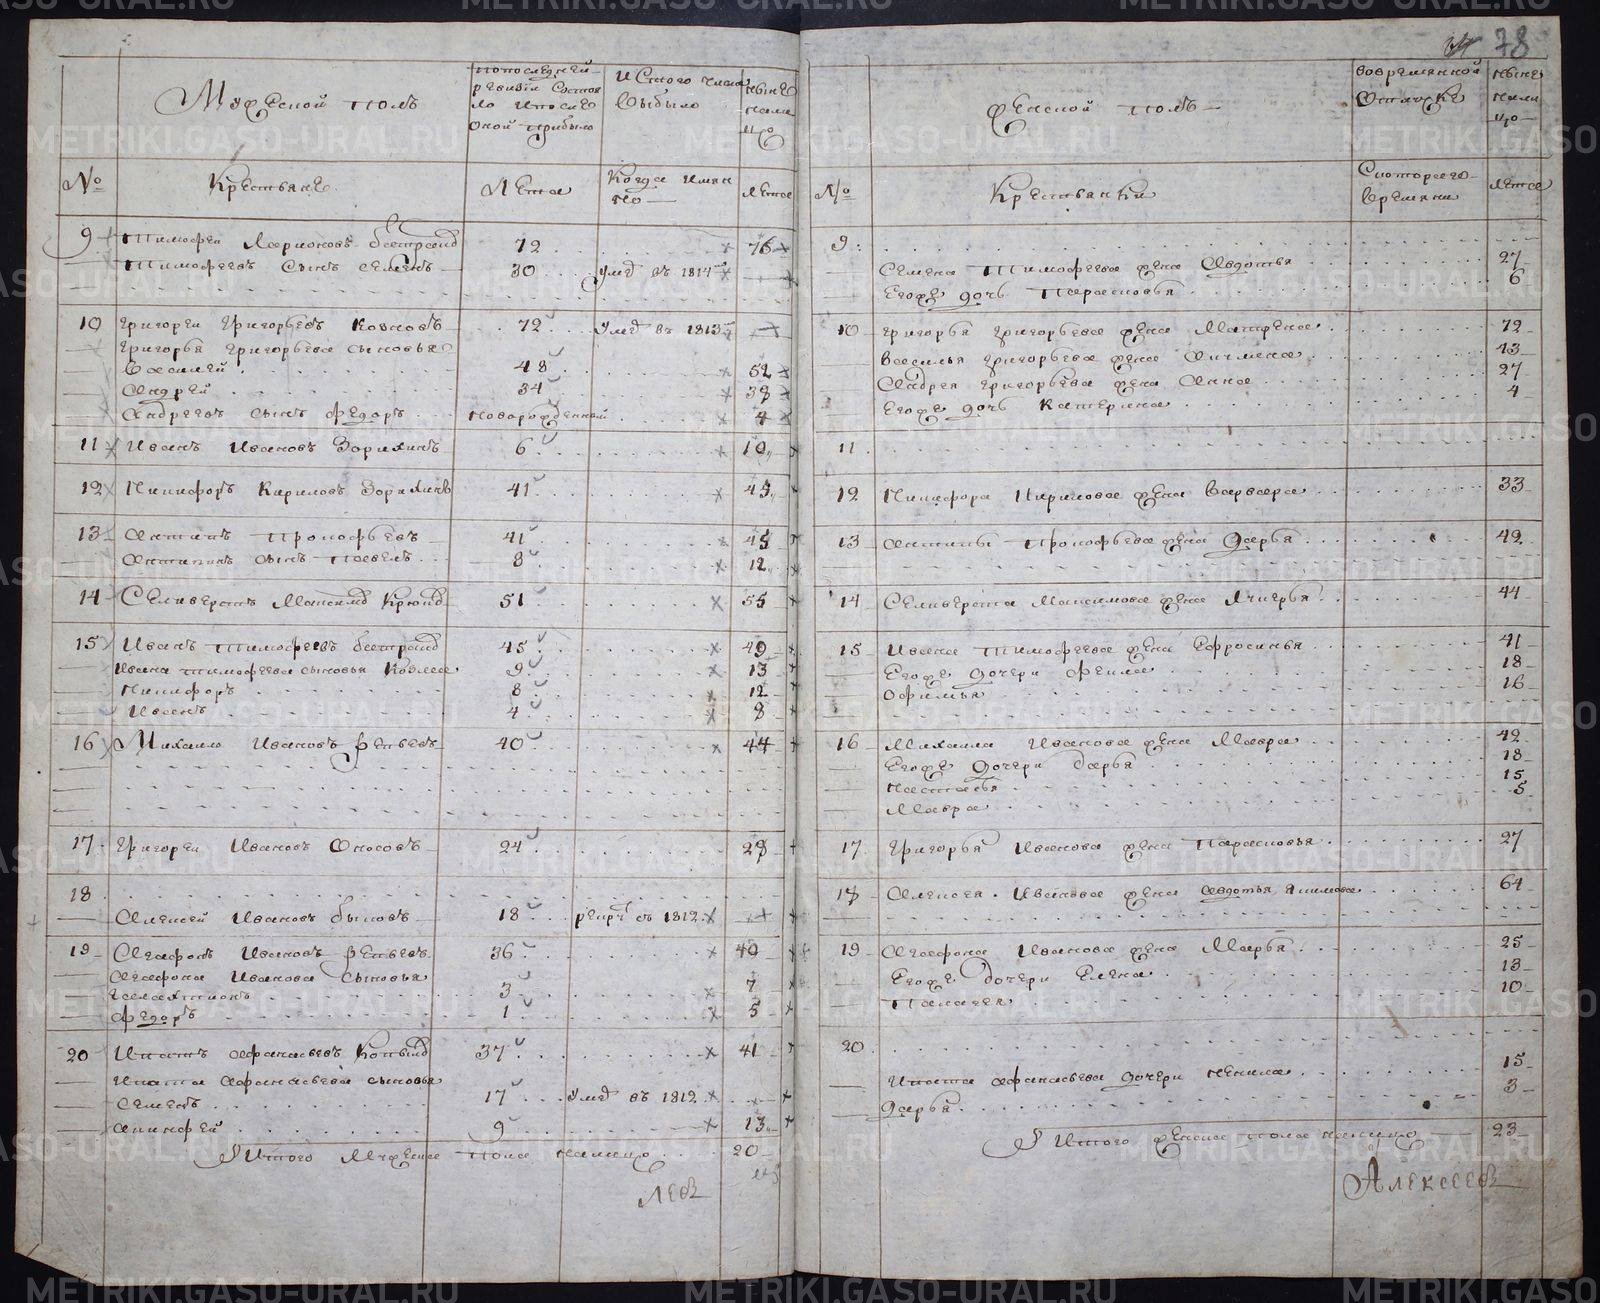 78
Мужеской полъ
По последней
ревизіи состоя
ло и после
оной прибыло
Изтого числа
выбыло
Ныне
на ли
цо
№
Крестьяне
Лета
Когда имян
но
Лета
9 Тимофей Ларионовъ 72 76
Тимофеевъ сынъ Семенъ 30 умре въ 1814
10 Григорей Григорьевъ 72 умре въ 1813
Григорья Григорьева сыновья
Василей 48 52
Андрей 34 38
Андреевъ сынъ Федоръ новорожденный 4
11 Иванъ Ивановъ Зорихинъ 6 10
12 Никифоръ Кириловъ Зорихинъ 41 45
13 Антипъ Прокофьевъ 41 45
Антипинъ сынъ Павелъ 8 12
14 Селиверстъ 51 55
15 Иванъ Тимофеевъ 45 49
Ивана Тимофеева сыновья 9 13
Никифоръ 8 12
Иванъ 4 8
16 Михайло Ивановъ 40 44
17 Григорей Ивановъ 24 28
18
Алексей Ивановъ Быковъ 18 рекру въ 1812
19 Агафонъ Ивановъ 36 40
Агафона Иванова сыновья
Галахтионъ 3 7
Федоръ 1 5
20 Ипатъ Афанасьевъ 37 41
Ипата Афанасьева сыновья
Семенъ 17 умре въ 1812
9 13
Итого мужеска пола налицо 20
Женской полъ
Во временной
отлучке
Ныне
нали
цо
№
Крестьянки
С которого
времяни
Лета
9
Семена Тимофеева жена Авдотья 27
Егоже дочь Парасковья 6
10 Григорья Григорьева жена Матрена 72
Василья Григорьева жена 43
Андрея Григорьева жена Анна 27
Егоже дочь Катерина 4
11
12 Никифора Кирилова жена Варвара 33
13 Антипы Прокофьева жена Дарья 42
14 Селиверста Максимова жена Лукерья 44
15 Ивана Тимофеева жена Ефросинья 41
Егоже дочери Фекла 18
Офимья 16
16 Михаила Иванова жена Мавра 42
Егоже дочери Дарья 18
Настасья 15
Мавра 5
17 Григорья Иванова жена Парасковья 27
18 Алексея Иванова жена Авдотья Якимова 64
19 Агафона Иванова жена Марья 25
Егоже дочери Елена 13
Палагея 10
20
Ипата Афанасьева дочери Ненила 15
Дарья 3
Итого женска пола налицо 23
Алексеевъ
METRIKI.GASO-URAL.RU